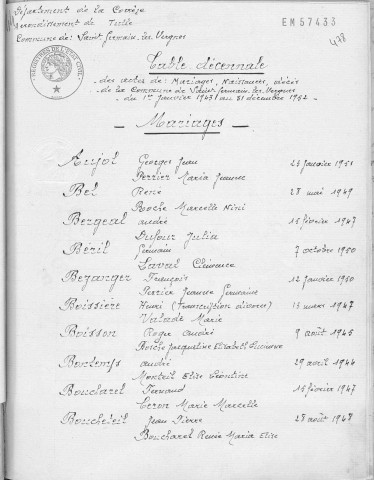 Département de la Corrèze
Arrondissement de Tulle
Commune de: Saint Germain les Vergnes
EM57433
478
Table décennale
des actes de: Mariages, Naissances, décès
de la Commune de Saint Germain les Vergnes
du 1er janvier 1943 au 31 décembre 1952
- Mariages -
Aujol Georges Jean 25 janvier 1951
Perrier Maria Jeanne
Bel René 28 mai 1949
Roche Marcelle Nini
Bergeal André 15 février 1947
Dufour Julia
Béril Germain 7 octobre 1950
Laval Clémence
Bezanger François 12 janvier 1950
Perrier Jeanne Germaine
Boissière Henri (Transcription divorce) 13 mars 1947
Valade Marie
Boisson Roger André 9 août 1945
Jacqueline Elisabeth
Bontemps André 29 avril 1944
Monteil Elise Léontine
Boucharel Fernand 15 février 1947
Ceron Marie Marcelle
Boucheteil Jean Pierre 28 août 1948
Boucharel Renée Maria Elise